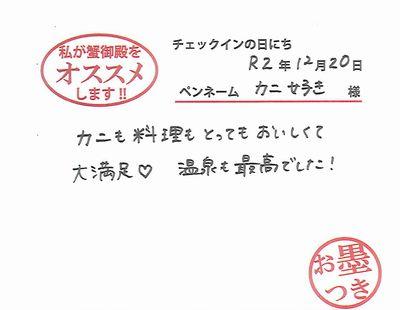 私が蟹御殿を
オススメ
します!!
チェックインの日にち
R2年12月20日
ペンネーム カニ好き 様
カニも料理もとってもおいしくて
大満足♡ 温泉も最高でした!
お墨
つき